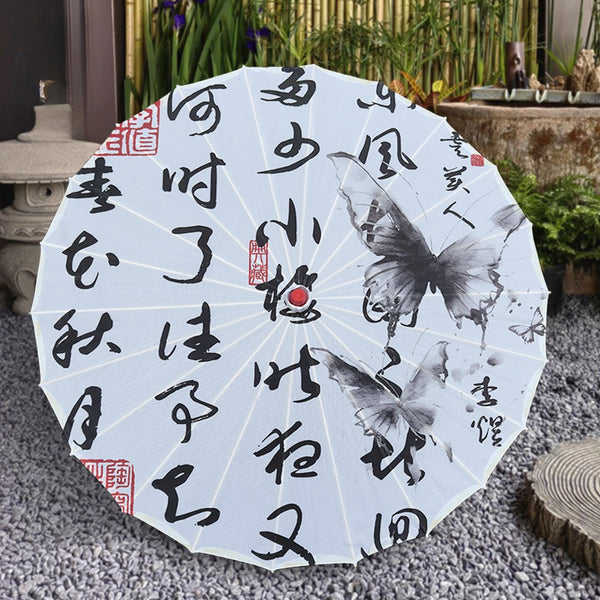 春花秋月
何时了往事知
多少小楼昨夜又
东风国不堪回
虞美人
李煜
典藏